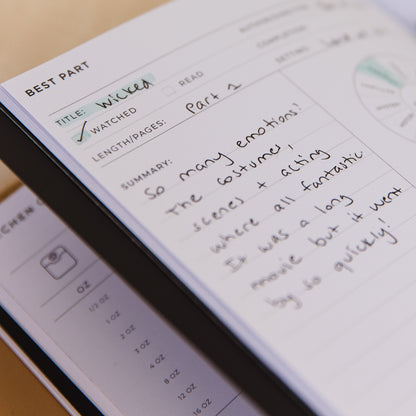 BEST PART
TITLE: Wicked
WATCHED READ
LENGTH/PAGES: Part 1
SUMMARY:
So many emotions!
The costumes,
scenes + acting
where all fantastic.
It was a long
movie but it went
by so quickly!
OZ
1/2 OZ
1 OZ
2 OZ
4 OZ
8 OZ
12 OZ
16 OZ